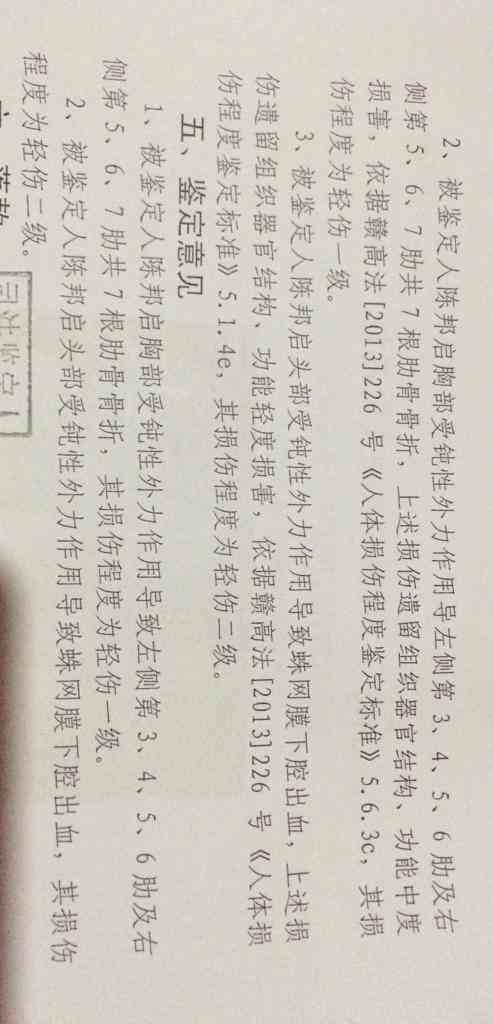 2、被鉴定人陈邦启胸部受钝性外力作用导左侧第 3、4、5、6 肋及右
侧第 5、6、7 肋共 7 根肋骨骨折，上述损伤遗留组织器官结构、功能中度
损害，依据赣高法[2013]226 号《人体损伤程度鉴定标准》5.6.3c，其损
伤程度为轻伤一级。
3、被鉴定人陈邦启头部受钝性外力作用导致蛛网膜下腔出血，上述损
伤遗留组织器官结构、功能轻度损害，依据赣高法[2013]226 号《人体损
伤程度鉴定标准》5.1.4e，其损伤程度为轻伤二级。
五、鉴定意见
1、被鉴定人陈邦启胸部受钝性外力作用导致左侧第 3、4、5、6 肋及右
侧第 5、6、7 肋共 7 根肋骨骨折，其损伤程度为轻伤一级。
2、被鉴定人陈邦启头部受钝性外力作用导致蛛网膜下腔出血，其损伤
程度为轻伤二级。